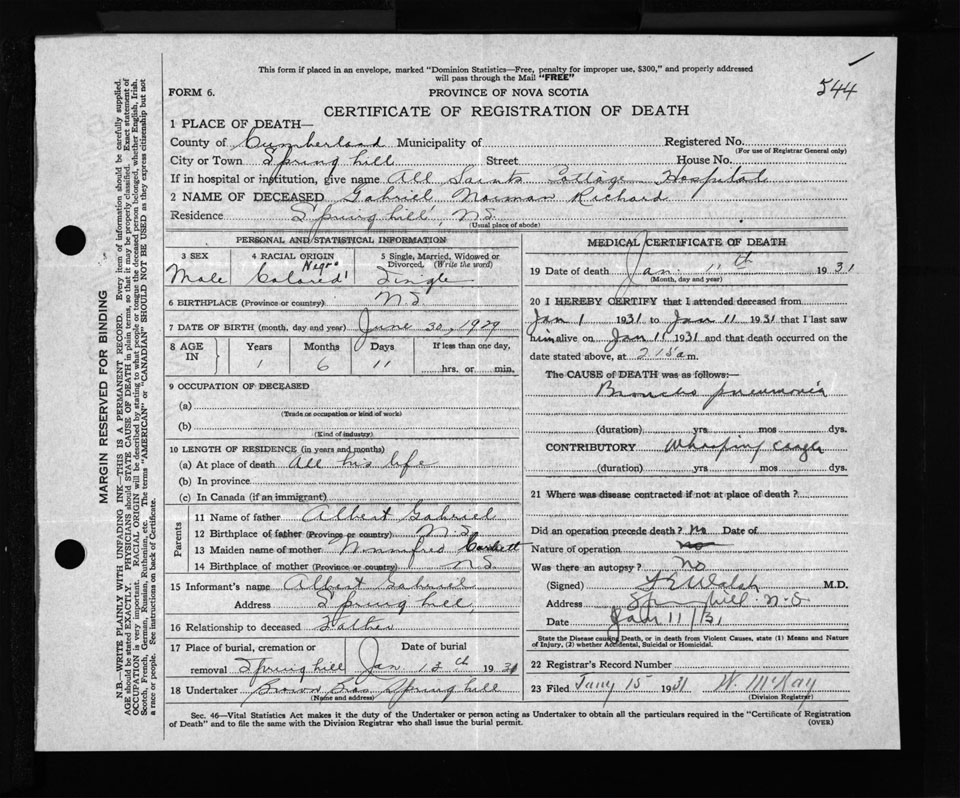 544
This form if placed in an envelope, marked "Dominion Statistics—Free, penalty for improper use, $300," and properly addressed
will pass through the Mail "FREE"
FORM 6. PROVINCE OF NOVA SCOTIA
CERTIFICATE OF REGISTRATION OF DEATH
1 PLACE OF DEATH—
County of Cumberland Municipality of Registered No.
(For use of Registrar General only)
City or Town Spring hill Street House No.
If in hospital or institution, give name All Saints Cottage Hospital
2 NAME OF DECEASED Gabriel Norman Richard
Residence Spring hill, N.S.
(Usual place of abode)
PERSONAL AND STATISTICAL INFORMATION
3 SEX 4 RACIAL ORIGIN 5 Single, Married, Widowed or
Divorced, (Write the word)
Negro
Male Colored Single
6 BIRTHPLACE (Province or country) N.S
7 DATE OF BIRTH (month, day and year) June 30, 1929
8 AGE IN Years Months Days If less than one day,
1 6 11 hrs. or min.
9 OCCUPATION OF DECEASED
(a)
(Trade or occupation or kind of work)
(b)
(Kind of industry)
10 LENGTH OF RESIDENCE (in years and months)
(a) At place of death All his life
(b) In province
(c) In Canada (if an immigrant)
Parents
11 Name of father Albert Gabriel
12 Birthplace of father (Province or country) N.S
13 Maiden name of mother
14 Birthplace of mother (Province or country) N.S.
15 Informant's name Albert Gabriel
Address Spring hill
16 Relationship to deceased Father
17 Place of burial, cremation or Date of burial
removal Spring hill Jan 12th 1931
18 Undertaker Brown Bros Spring hill
(Name and address)
MEDICAL CERTIFICATE OF DEATH
19 Date of death Jan. 11th 1931
(Month, day and year)
20 I HEREBY CERTIFY that I attended deceased from
Jan 1 1931 to Jan 11 1931 that I last saw
him alive on Jan 11 1931 and that death occurred on the
date stated above, at 2 15 a m.
The CAUSE of DEATH was as follows:—
Broncho pneumonia
(duration) yrs mos dys.
CONTRIBUTORY Whooping Cough
(duration) yrs mos dys.
21 Where was disease contracted if not at place of death?
Did an operation precede death? No Date of
Nature of operation no
Was there an autopsy? No
(Signed) Walsh M.D.
Address Spring hill N-S
Date Jan 11/31
State the Disease causing Death, or in death from Violent Causes, state (1) Means and Nature
of Injury, (2) whether Accidental, Suicidal or Homicidal.
22 Registrar's Record Number
23 Filed Jany 15 1931 W. McKay
(Division Registrar)
Sec. 46—Vital Statistics Act makes it the duty of the Undertaker or person acting as Undertaker to obtain all the particulars required in the "Certificate of Registration
of Death" and to file the same with the Division Registrar who shall issue the burial permit. (OVER)
MARGIN RESERVED FOR BINDING
N.B.—WRITE PLAINLY WITH UNFADING INK—THIS IS A PERMANENT RECORD. Every item of information should be carefully supplied.
AGE should be stated EXACTLY. PHYSICIANS should STATE CAUSE OF DEATH in plain terms, so that it may be properly classified. Exact statement of
OCCUPATION is very important. RACIAL ORIGIN will be described by stating to what people or tongue the deceased person belonged, whether English, Irish,
Scotch, French, German, Russian, Ruthenian, etc. The terms "AMERICAN" or "CANADIAN" SHOULD NOT BE USED as they express citizenship but not
a race or people. See instructions on back of Certificate.